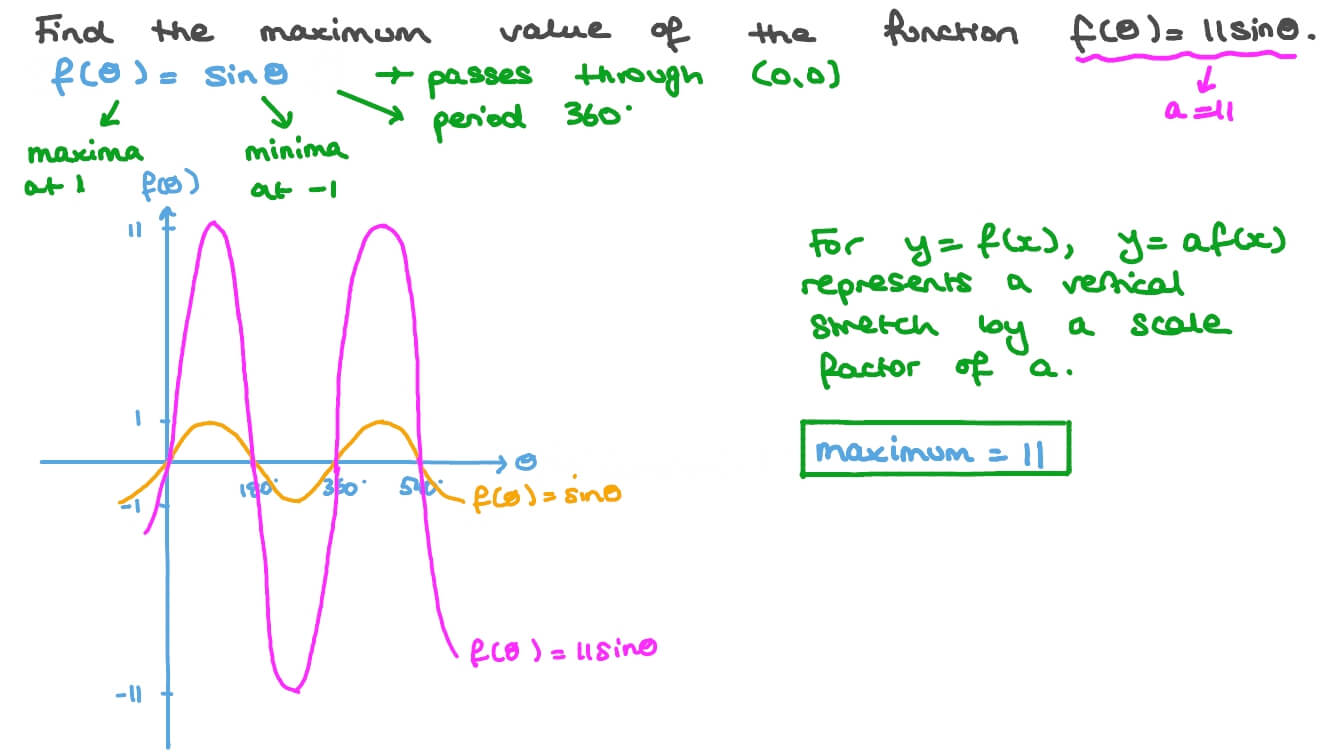 Find the maximum value of the function f(θ) = 11sinθ.
f(θ) = sinθ → passes through (0,0)
a = 11
period 360°
maxima at 1
minima at -1
f(θ)
11
1
-1
-11
180° 360° 540°
θ
f(θ) = sinθ
f(θ) = 11sinθ
For y = f(x), y = af(x)
represents a vertical
stretch by a scale
factor of a.
maximum = 11